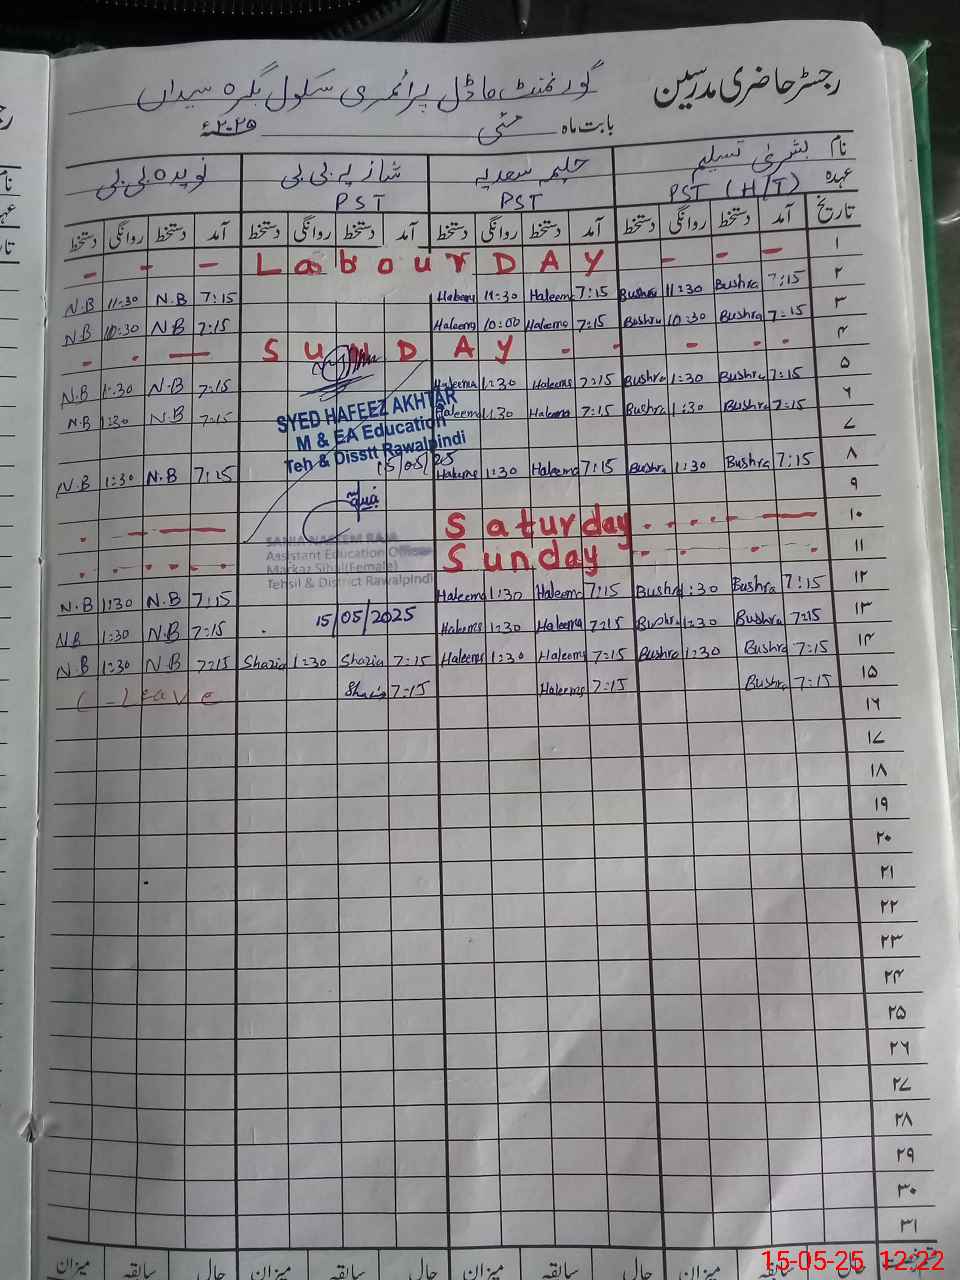 رجسٹر حاضری مدرسین
گورنمنٹ ماڈل پرائمری سکول بگرہ سیداں
بابت ماہ مئی ۲۰۲۵ء
نام بشریٰ تسلیم حلیمہ سعدیہ شازیہ بی بی نویدہ بی بی
عہدہ PST (H/T) PST PST
تاریخ آمد دستخط روانگی دستخط آمد دستخط روانگی دستخط آمد دستخط روانگی دستخط آمد دستخط روانگی دستخط
- - - Labour DAY - - - ۱
N.B 11:30 N.B 7:15 Haleema 11:30 Haleema 7:15 Bushra 11:30 Bushra 7:15 ۲
N.B 10:30 N.B 7:15 Haleema 10:00 Haleema 7:15 Bushra 10:30 Bushra 7:15 ۳
- - — SUNDAY - - - - - ۴
N.B 1:30 N.B 7:15 Haleema 1:30 Haleema 7:15 Bushra 1:30 Bushra 7:15 ۵
N.B 1:30 N.B 7:15 Haleema 1:30 Haleema 7:15 Bushra 1:30 Bushra 7:15 ۶
SYED HAFEEZ AKHTAR
M & EA Education
Teh & Disstt Rawalpindi
15/05/25
۷
N.B 1:30 N.B 7:15 Haleema 1:30 Haleema 7:15 Bushra 1:30 Bushra 7:15 ۸
۹
Saturday ۱۰
Sunday ۱۱
SANIA NAEEM RAJA
Assistant Education Officer
Markaz Sihal (Female)
Tehsil & District Rawalpindi
15/05/2025
N.B 1:30 N.B 7:15 Haleema 1:30 Haleema 7:15 Bushra 1:30 Bushra 7:15 ۱۲
N.B 1:30 N.B 7:15 Haleema 1:30 Haleema 7:15 Bushra 1:30 Bushra 7:15 ۱۳
N.B 1:30 N.B 7:15 Shazia 1:30 Shazia 7:15 Haleema 1:30 Haleema 7:15 Bushra 1:30 Bushra 7:15 ۱۴
C-Leave Shazia 7:15 Haleema 7:15 Bushra 7:15 ۱۵
۱۶
۱۷
۱۸
۱۹
۲۰
۲۱
۲۲
۲۳
۲۴
۲۵
۲۶
۲۷
۲۸
۲۹
۳۰
۳۱
حالی سابقہ میزان حالی سابقہ میزان حالی سابقہ میزان
15-05-25 12:22